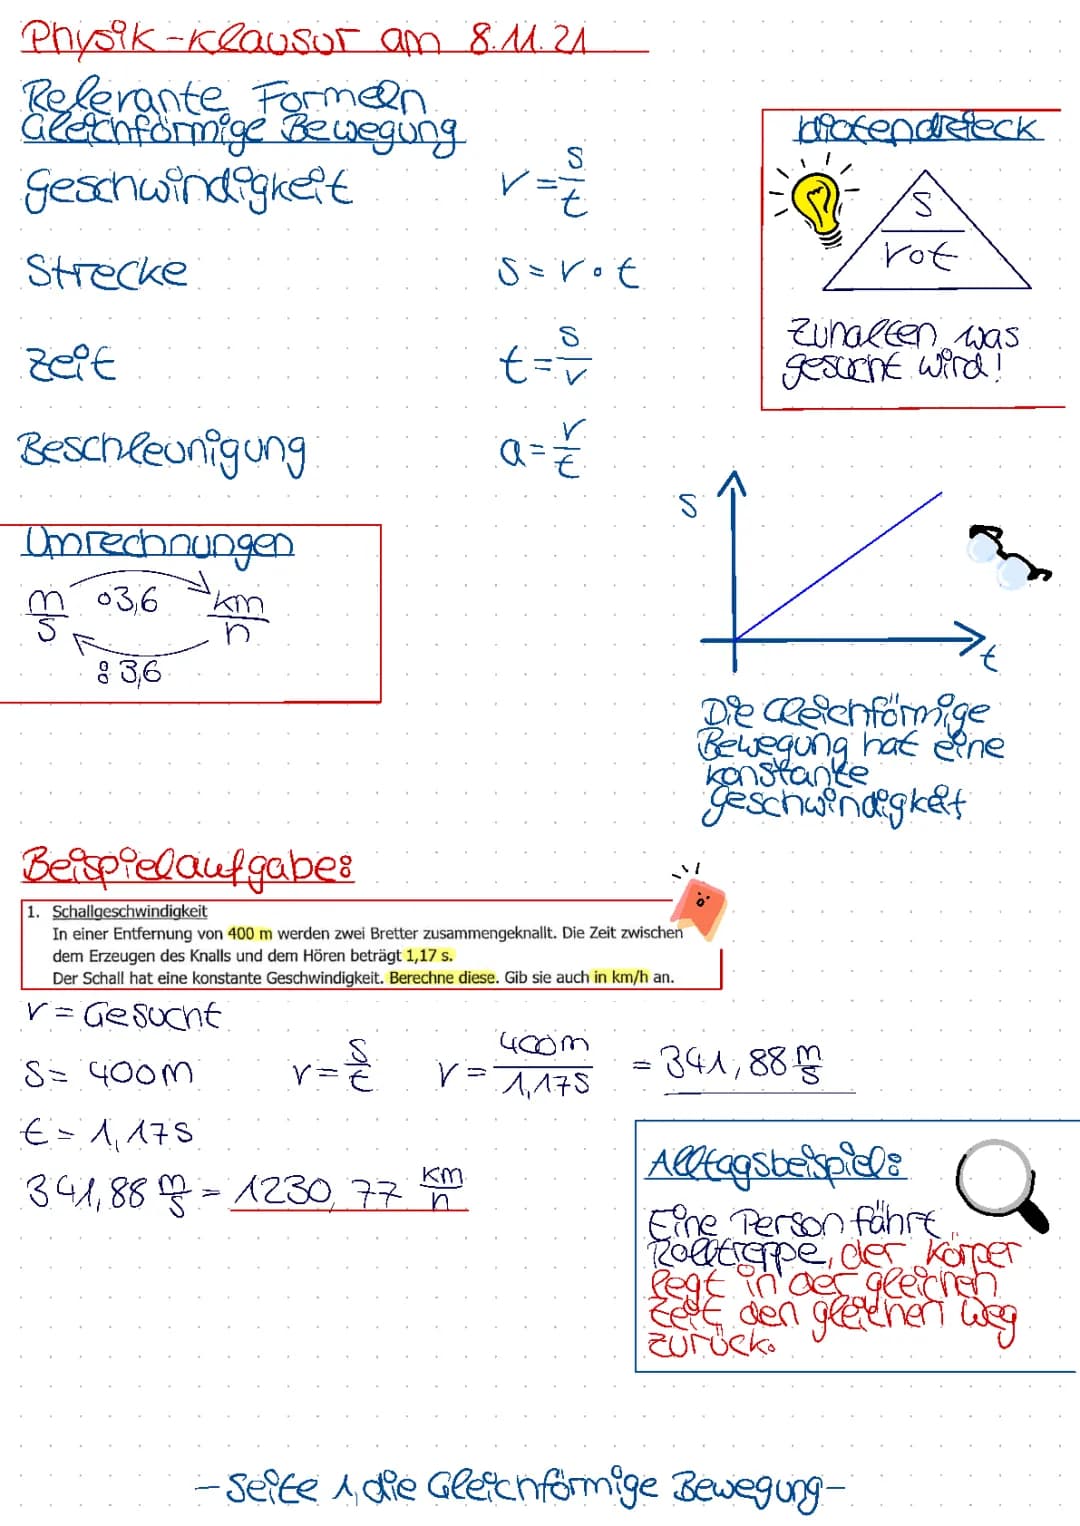 Physik-Klausur am 8.11.21
Relevante Formeln
Gleichförmige Bewegung
Geschwindigkeit v = s/t
Strecke s = v · t
Zeit t = s/v
Beschleunigung a = v/t
Idiotendreieck
s
v · t
Zuhalten was
gesucht wird!
Umrechnungen
m/s ·3,6 km/h
: 3,6
s
t
Die Gleichförmige
Bewegung hat eine
konstante
Geschwindigkeit
Beispielaufgabe:
1. Schallgeschwindigkeit
In einer Entfernung von 400 m werden zwei Bretter zusammengeknallt. Die Zeit zwischen
dem Erzeugen des Knalls und dem Hören beträgt 1,17 s.
Der Schall hat eine konstante Geschwindigkeit. Berechne diese. Gib sie auch in km/h an.
v = Gesucht
s = 400m v = s/t v = 400m/1,17s = 341,88 m/s
t = 1,17s
341,88 m/s = 1230,77 km/h
Alltagsbeispiel:
Eine Person fährt
Rolltreppe, der Körper
legt in der gleichen
Zeit den gleichen Weg
zurück.
-Seite 1, die Gleichförmige Bewegung-